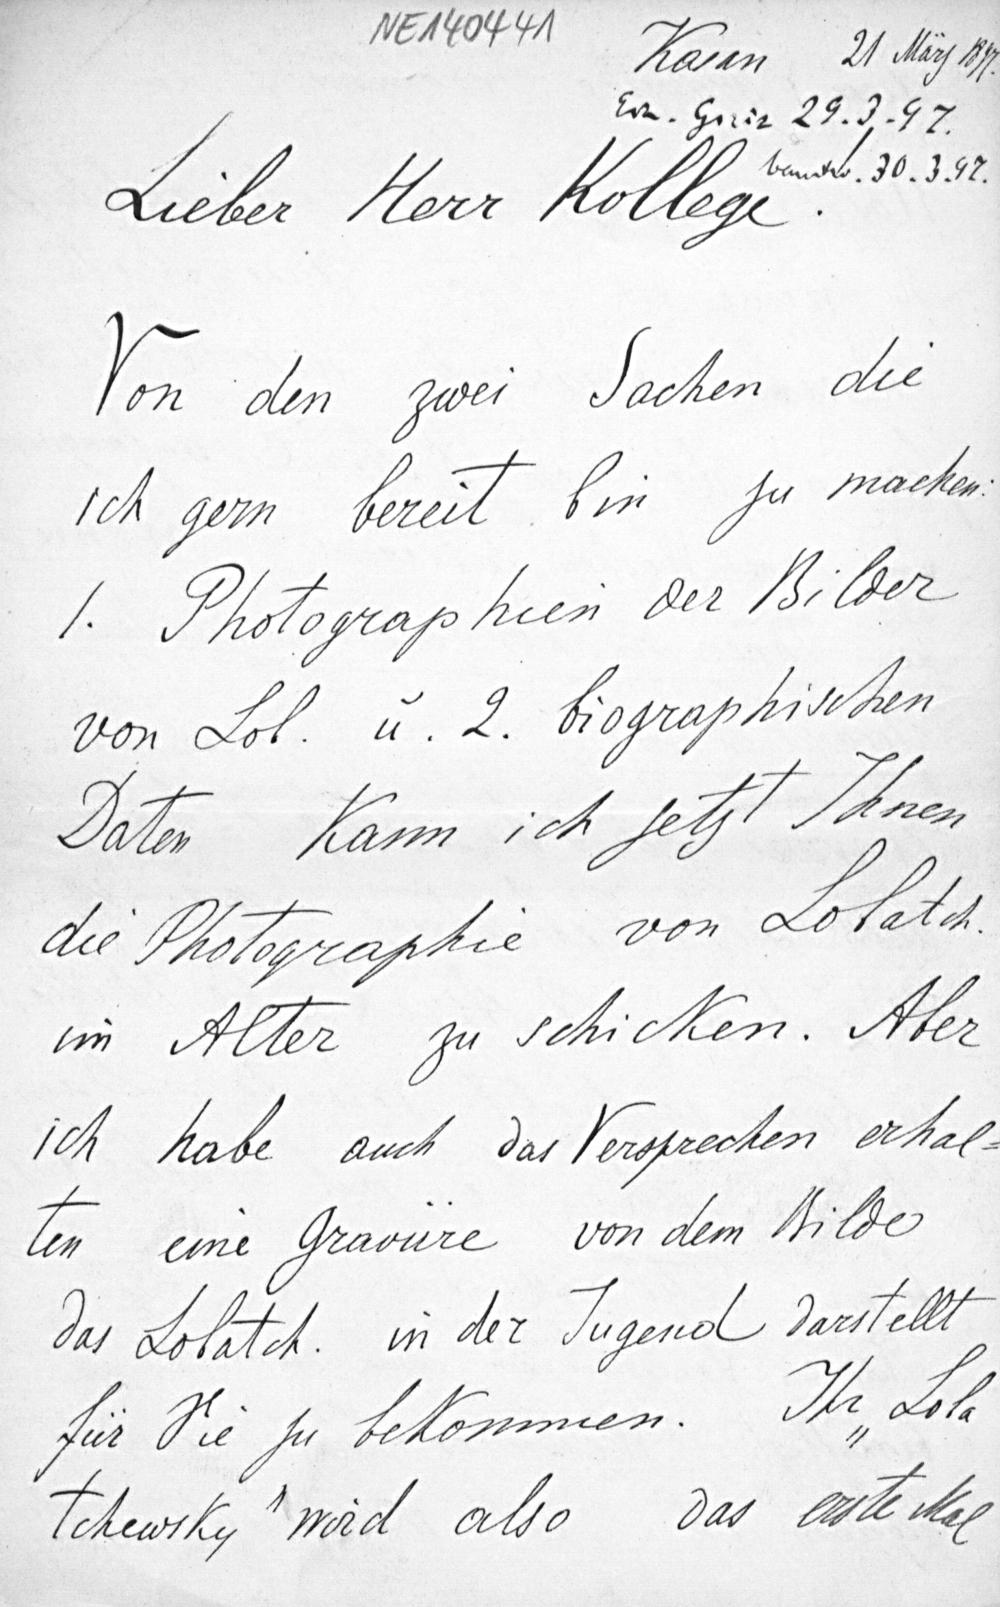 NE140441
Kasan 21 März 1897.
29.3.97.
30.3.97.
Lieber Herr Kollege.
Von den zwei Sachen die
ich gern bereit bin zu machen:
1. Photographien der Bilder
von Lob. u. 2. biographischen
Daten Kann ich jetzt Ihnen
die Photographie von Lobatch.
im Alter zu schicken. Aber
ich habe auch das Versprechen erhal=
ten eine Gravüre von dem Bilde
das Lobatch. in der Jugend darstellt
für Sie zu bekommen. Ihr „Loba
tchewsky" wird also das erste Mal